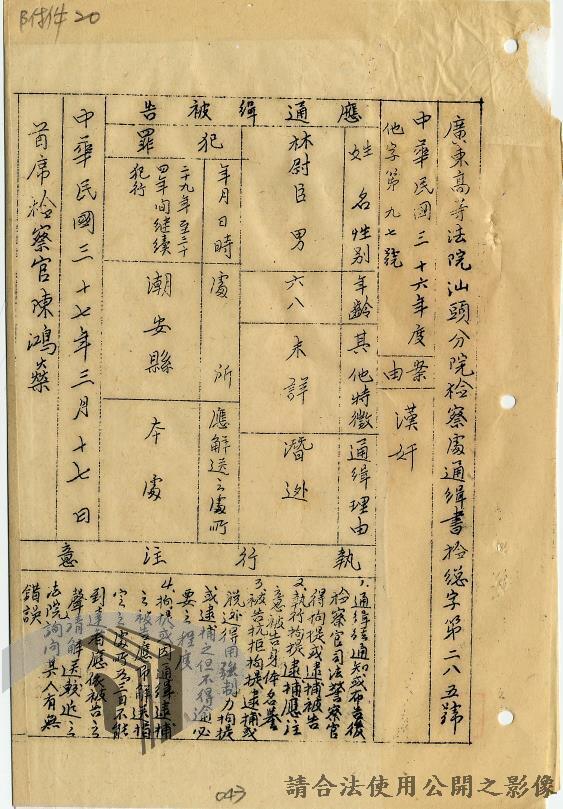 附件20
廣東高等法院汕頭分院檢察處通緝書檢總字第二八五號
中華民國三十六年度
他字第九七號
案由
漢奸
應通緝被告
姓名
性別
年齡
其他特徵
通緝理由
林尉臣
男
六八
未詳
潛逃
犯罪
年月日時
處所
應解送之處所
二十九年至三十
四年間繼續
犯行
潮安縣
本處
中華民國三十七年三月十七日
首席檢察官陳鴻燊
執行注意
1.通緝經通知或布告後
檢察官司法警察官
得拘提或逮捕被告
2.執行拘提逮捕應注
意被告身体名譽
3.被告抗拒拘提逮捕或
脫逃得用強制力拘提
或逮捕之但不得逾必
要之程度
4.拘提或因通緝逮捕
之被告應即解送指
定之處所如三日不能
到達者應依被告之
聲請解送較近之
法院詢問其人有無
錯誤
043
請合法使用公開之影像